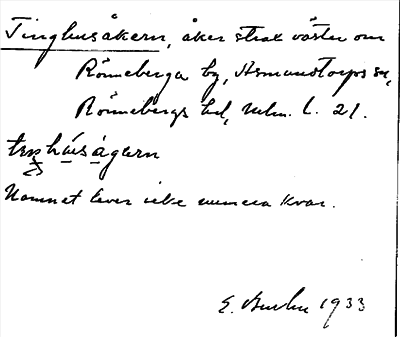 Tinghusåkern, åker strax väster om
Rönneberga by, Asmundtorps sn,
Rönnebergs hd, Mlm. L. 21.
tiŋhúsågərn
Namnet lever icke numera kvar.
E. 1933